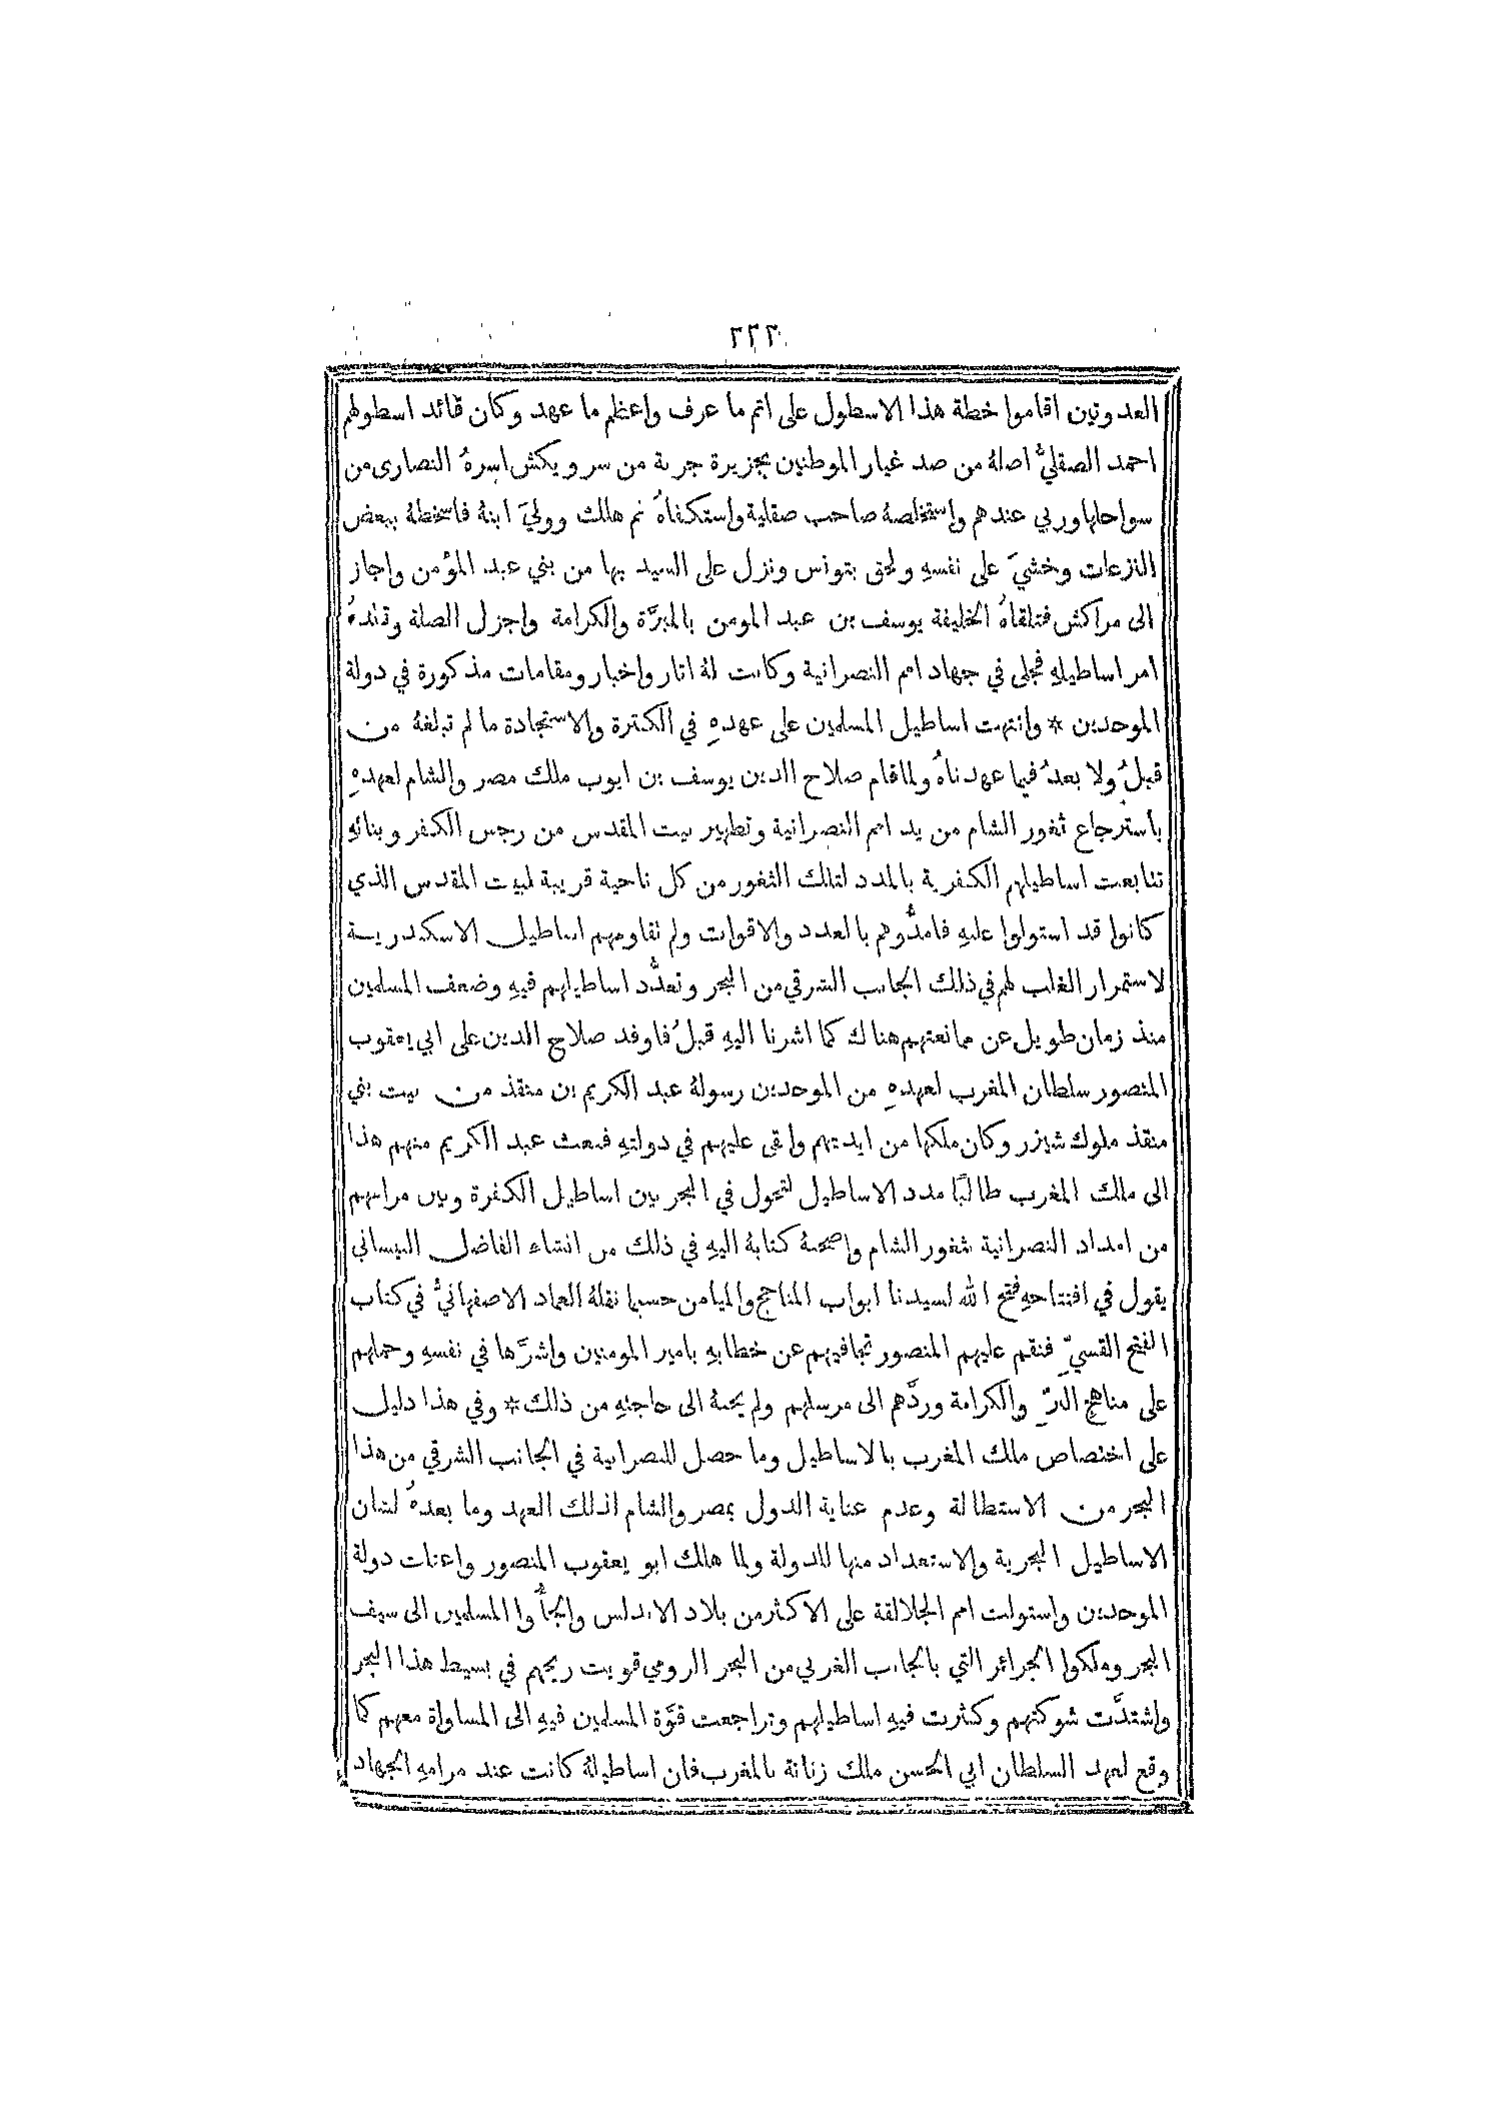 ٢٢٣
العدوتين اقاموا خطة هذا الاسطول على اتم ما عرف واعظم ما عهد وكان قائد اسطولهم
احمد الصقليُّ اصلهُ من صد غيار الموطنين بجزيرة جربة من سرويكش اسرهُ النصارى من
سواحلها وربي عندهم واستخلصهُ صاحب صقلية واستكفاهُ ثم هلك ووليَ ابنهُ فاسخطهُ ببعض
النزعات وخشيَ على نفسهِ ولحق بتونس ونزل على السيد بها من بني عبد المؤمن واجاز
الى مراكش فتلقاهُ الخليفة يوسف بن عبد المومن بالمبرَّة والكرامة واجزل الصلة وقلدهُ
امر اساطيلهِ فجلى في جهاد امم النصرانية وكانت لهُ اثار واخبار ومقامات مذكورة في دولة
الموحدين * وانتهت اساطيل المسلمين على عهدهِ في الكثرة والاستجادة ما لم تبلغهُ من
قبلُ ولا بعدُ فيما عهدناهُ ولما قام صلاح الدين يوسف بن ايوب ملك مصر والشام لعهدهِ
باسترجاع ثغور الشام من يد امم النصرانية وتطهير بيت المقدس من رجس الكفر وبنائهِ
تتابعت اساطيلهم الكفرية بالمدد لتلك الثغور من كل ناحية قريبة لبيت المقدس الذي
كانوا قد استولوا عليهِ فامدُّوهم بالعدد والاقوات ولم تقاومهم اساطيل الاسكندرية
لاستمرار الغلب لهم في ذلك الجانب الشرقي من البحر وتعدُّد اساطيلهم فيهِ وضعف المسلمين
منذ زمان طويل عن ممانعتهم هناك كما اشرنا اليهِ قبلُ فاوفد صلاح الدين على ابي يعقوب
المنصور سلطان المغرب لعهدهِ من الموحدين رسولهُ عبد الكريم بن منقذ من بيت بني
منقذ ملوك شيزر وكان ملكها من ايديهم وابقى عليهم في دولتهِ فبعث عبد الكريم منهم هذا
الى ملك المغرب طالبًا مدد الاساطيل لتحول في البحر بين اساطيل الكفرة وبين مرامهم
من امداد النصرانية بثغور الشام واصحبهُ كتابهُ اليهِ في ذلك من انشاء الفاضل البيساني
يقول في افتتاحهِ فتح الله لسيدنا ابواب المناجح والميامن حسبما نقلهُ العماد الاصفهانيُّ في كتاب
الفتح القسيّ فنقم عليهم المنصور تجافيهم عن خطابهِ بامير المومنين واسرَّها في نفسهِ وحملهم
على مناهج البرّ والكرامة وردَّهم الى مرسلهم ولم يجبهُ الى حاجتهِ من ذلك * وفي هذا دليل
على اختصاص ملك المغرب بالاساطيل وما حصل للنصرانية في الجانب الشرقي من هذا
البحر من الاستطالة وعدم عناية الدول بمصر والشام لذلك العهد وما بعدهُ لشان
الاساطيل البحرية والاستعداد منها للدولة ولما هلك ابو يعقوب المنصور واعتلت دولة
الموحدين واستولت امم الجلالقة على الاكثر من بلاد الاندلس والجأُوا المسلمين الى سيف
البحر وملكوا الجزائر التي بالجانب الغربي من البحر الرومي قويت ريحهم في بسيط هذا البحر
واشتدَّت شوكتهم وكثرت فيهِ اساطيلهم وتراجعت قوَّة المسلمين فيهِ الى المساواة معهم كما
وقع لعهد السلطان ابي الحسن ملك زناتة بالمغرب فان اساطيلهُ كانت عند مرامهِ الجهاد